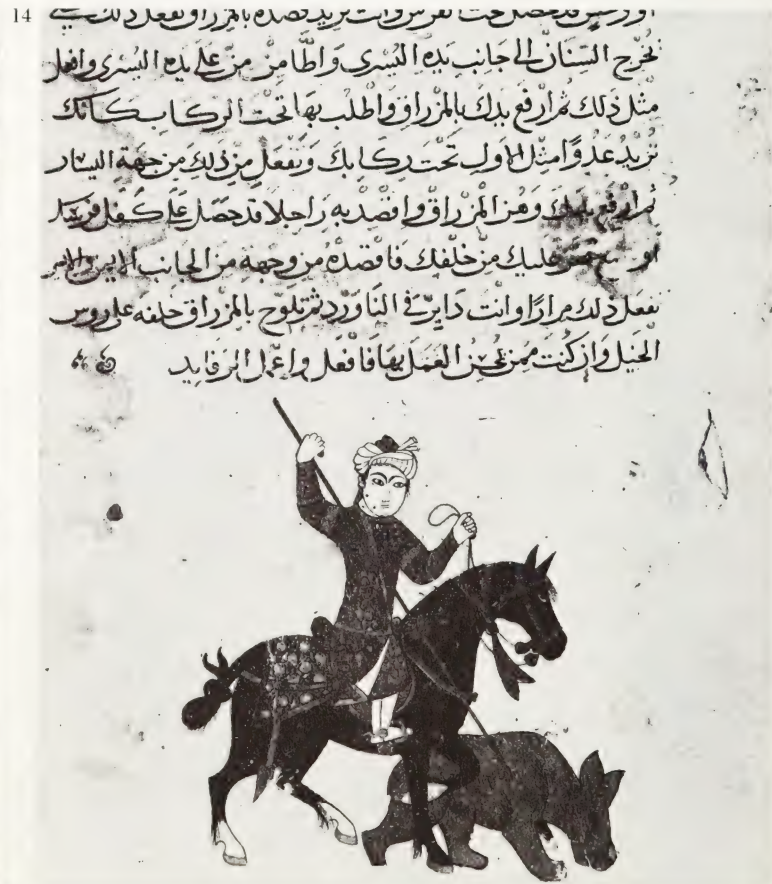 14
تحت الفرس وانت تريد قصده بالمزراق تفعل ذلك
تخرج السنان الى جانب يده اليسرى واطا من على يده اليسرى وافعل
مثل ذلك ثم ارفع يدك بالمزراق واطلب بها تحت الركاب كانك
تريد عدوا مثل الاول تحت ركابك وتفعل من ذلك من جهة اليسار
ثم ارفع يدك وهز المزراق واقصد به راجلا قد حصل على كفل فرسك
او عليك من خلفك فاقصده من وجهه من الجانب الايمن والايسر
تفعل ذلك مرارا وانت داير في الناورد ثم تلوح بالمزراق خلفه على روس
الخيل وان كنت ممن يحسن العمل بها فافعل واعمل